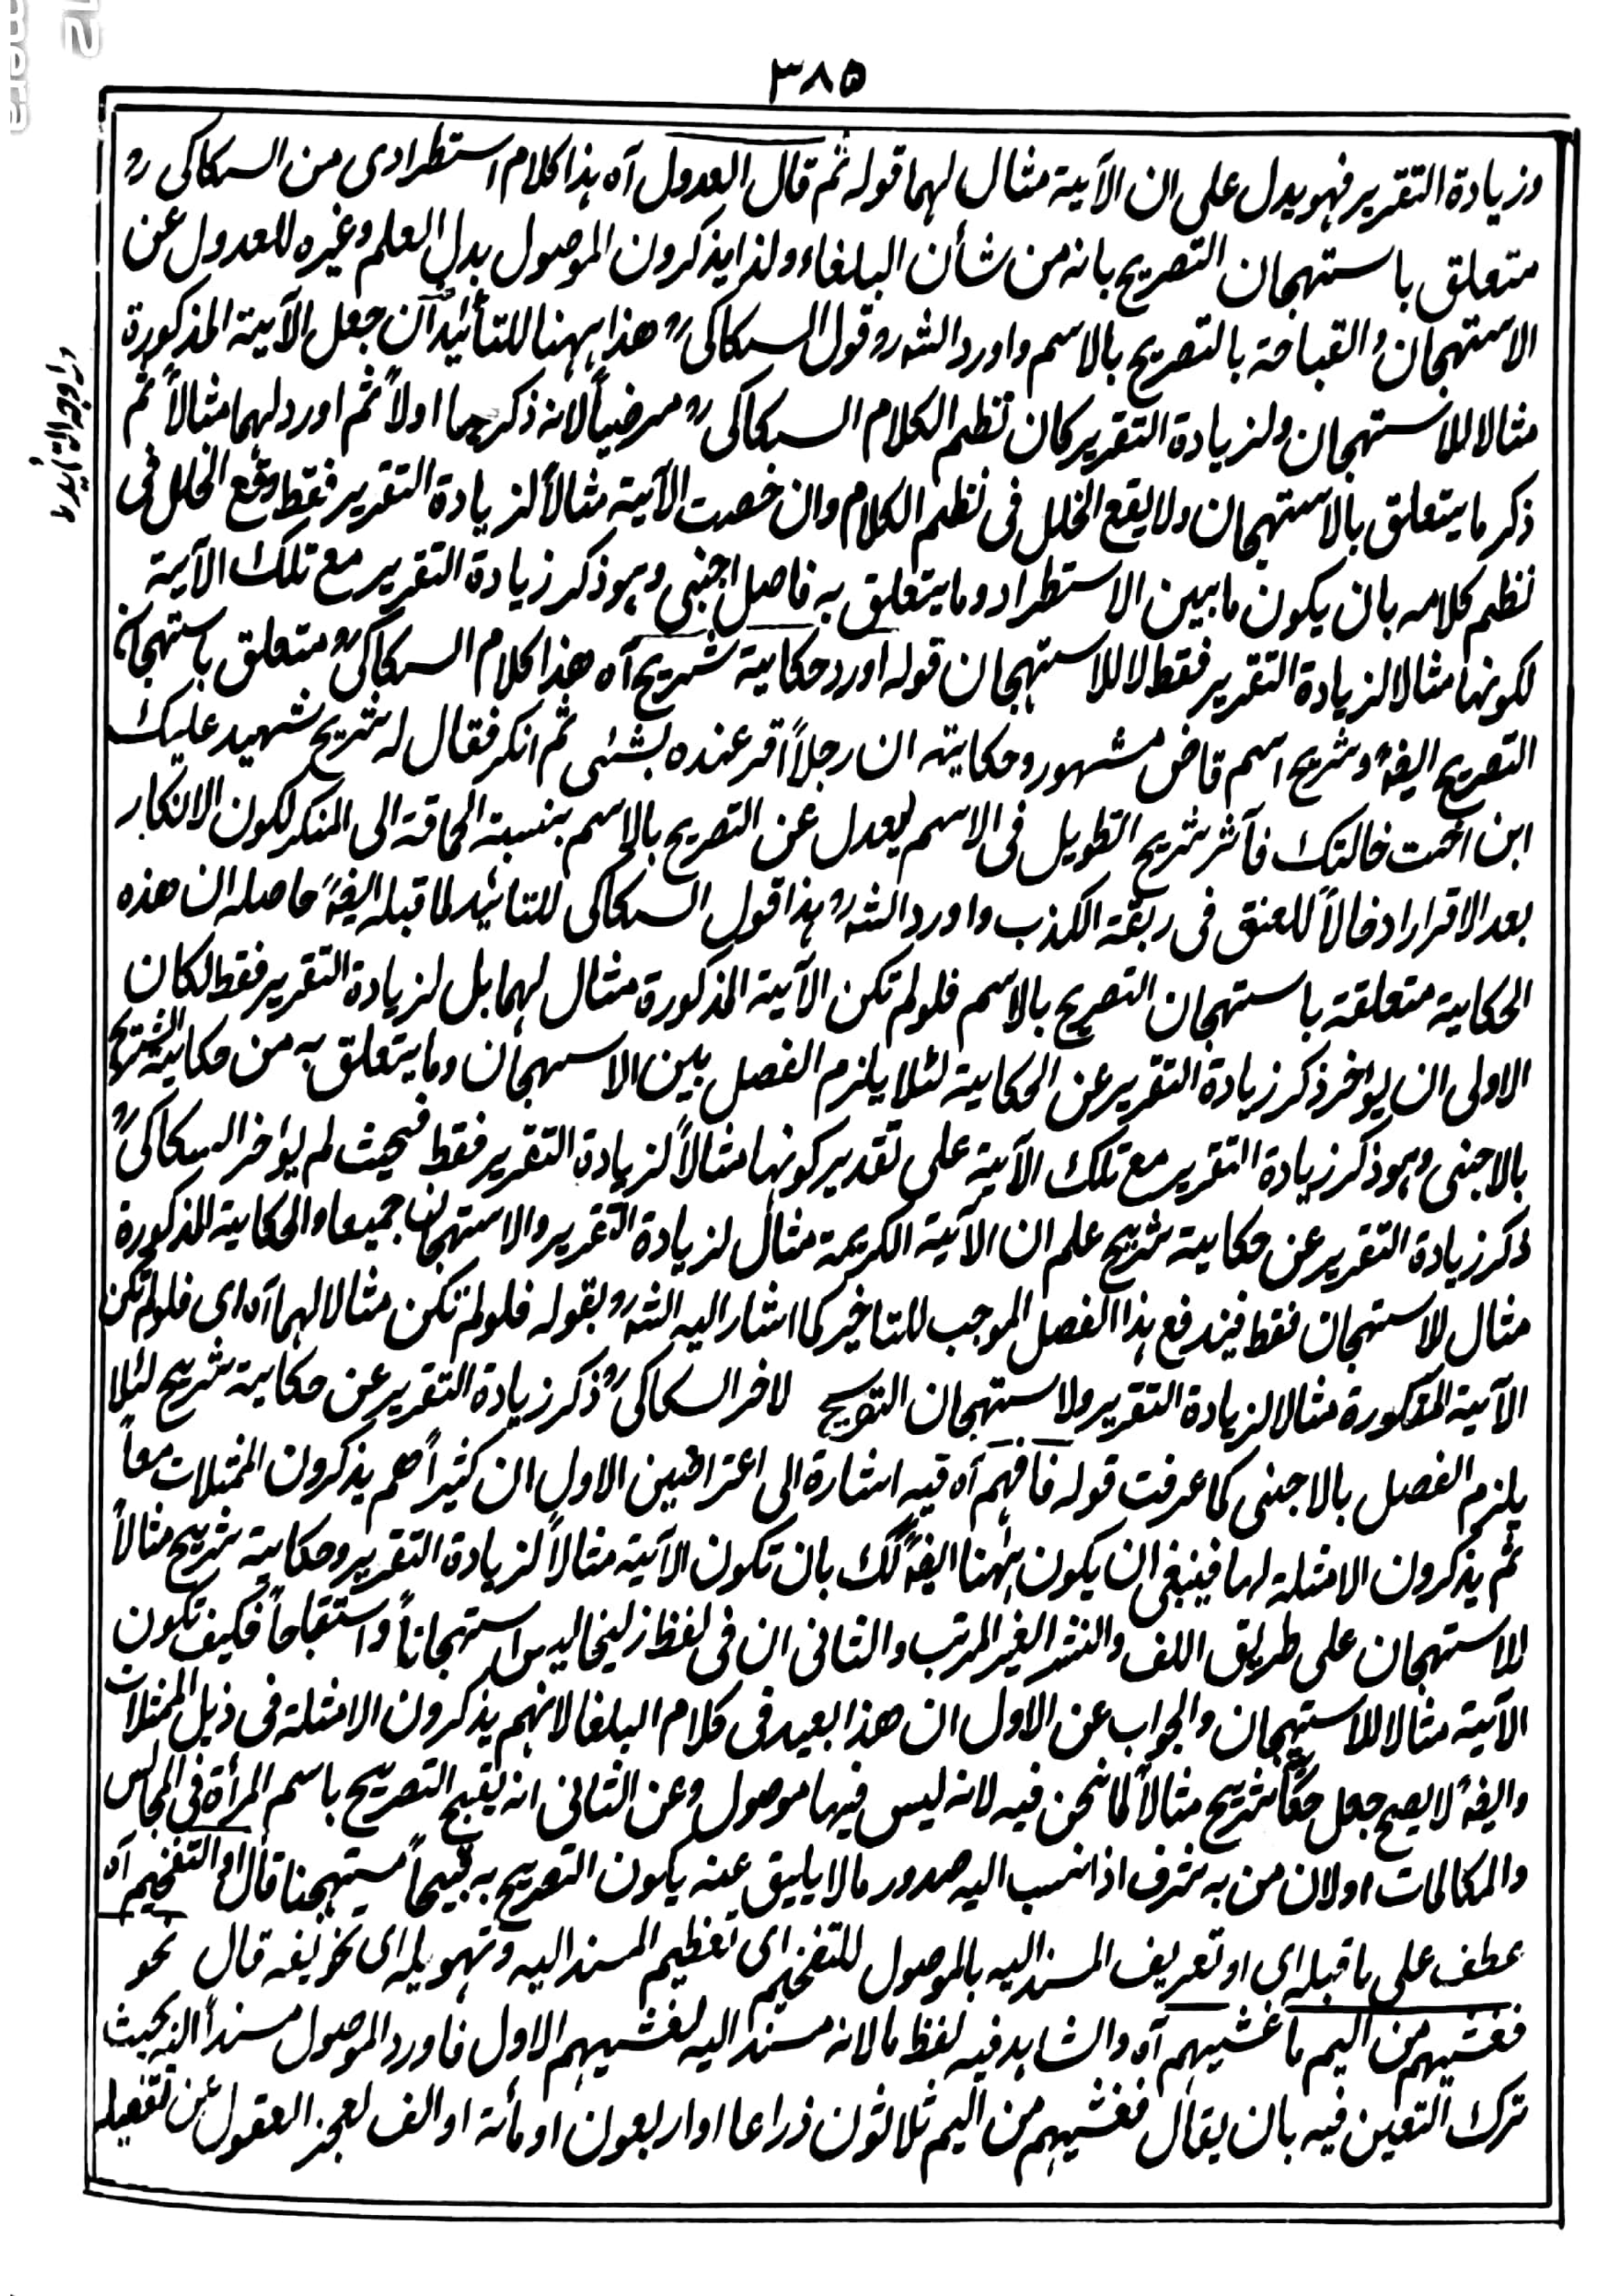 ٣٨٥
وزيادة التقرير فهو يدل على ان الآية مثال لهما قوله ثم قال العدول آه هذا كلام استطرادى من السكاكى رح
متعلق باستهجان التصريح بانه من شأن البلغاء ولذا يذكرون الموصول بدل العلم وغيره للعدول عن
الاستهجان والقباحة بالتصريح بالاسم واورد الشه رح قول السكاكى رح هذا ههنا للتأئيد ان جعل الآية المذكورة
مثالا للاستهجان ولزيادة التقرير كان نظم الكلام السكاكى رح مرضياً لانه ذكرهما اولاً ثم اورد لهما مثالاً ثم
ذكر ما يتعلق بالاستهجان ولا يقع الخلل فى نظم الكلام وان خصت الآية مثالاً لزيادة التقرير فقط وقع الخلل فى
نظم كلامه بان يكون ما بين الاستطراد وما يتعلق به فاصل اجنبى وهو ذكر زيادة التقرير مع تلك الآية
لكونها مثالا لزيادة التقرير فقط لا للاستهجان قوله اورد حكاية شريح آه هذا كلام السكاكى رح متعلق باستهجان
التصريح ايضً وشريح اسم قاض مشهور وحكايته ان رجلاً اقر عنده بشئى ثم انكر فقال له شريح شهيد عليك
ابن اخت خالتك فآثر شريح التطويل فى الاسم ليعدل عن التصريح بالاسم بنسبة الحماقة الى المنكر لكون الانكار
بعد الاقرار ادخالاً للعنق فى ربقة الكذب واورد الشه رح هذا قول السكاكى للتائيد لما قبله ايضً حاصله ان هذه
الحكاية متعلقة باستهجان التصريح بالاسم فلو لم تكن الآية المذكورة مثال لهما بل لزيادة التقرير فقط لكان
الاولى ان يواخر ذكر زيادة التقرير عن الحكاية لئلا يلزم الفصل بين الاستهجان وما يتعلق به من حكاية الشريح
بالاجنبى وهو ذكر زيادة التقرير مع تلك الآية على تقدير كونها مثالاً لزيادة التقرير فقط فحيث لم يؤاخر السكاكى رح
ذكر زيادة التقرير عن حكاية شريح علم ان الآية الكريمة مثال لزيادة التقرير والاستهجان جميعا والحكاية المذكورة
مثال للاستهجان فقط فيندفع هذا الفصل الموجب للتاخير كما اشار اليه الشه رح بقوله فلو لم تكن مثالا لهما آه اى فلو لم تكن
الآية المذكورة مثالا لزيادة التقرير ولاستهجان التصريح لاخر السكاكى رح ذكر زيادة التقرير عن حكاية شريح لئلا
يلزم الفصل بالاجنبى كما عرفت قوله فافهم آه فيه اشارة الى اعتراضين الاول ان كثيراً هم يذكرون الممثلات معاً
ثم يذكرون الامثلة لها فينبغى ان يكون ههنا ايضً كك بان تكون الآية مثالاً لزيادة التقرير وحكاية شريح مثالاً
للاستهجان على طريق اللف والنشر الغير المرتب والثانى ان فى لفظ زليخا ليس استهجاناً واستقباحاً فكيف تكون
الآية مثالا للاستهجان والجواب عن الاول ان هذا بعيد فى كلام البلغا لانهم يذكرون الامثلة فى ذيل الممثلات
وايضً لا يصح جعل حكاية شريح مثالاً لما نحن فيه لانه ليس فيها موصول وعن الثانى انه يقبح التصريح باسم المرأة فى المجالس
والمكالمات اولان من به شرف اذا نسب اليه صدور ما لا يليق عنه يكون التصريح به قبيحاً مستهجنا قال او التفخيم آه
عطف على ما قبله اى او تعريف المسند اليه بالموصول للتفخيم اى تعظيم المسند اليه وتهويله اى تخويفه قال نحو
فغشيهم من اليم ما غشيهم آه والشاهد فيه لفظ ما لانه مسند اليه لغشيهم الاول فاورد الموصول مسنداً اليه بحيث
ترك التعين فيه بان يقال فغشيهم من اليم ثلاثون ذراعا او اربعون او مأئة او الف لعجز العقول عن تفصيله